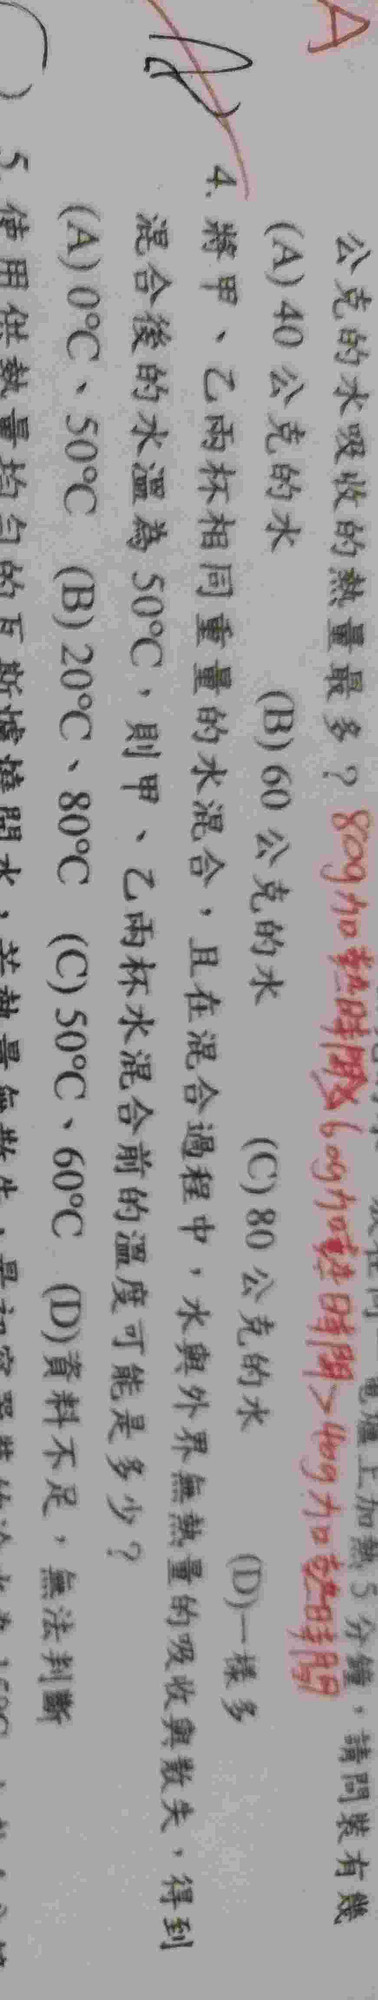 A
公克的水吸收的熱量最多? 80g加熱時間>60g加熱時間>40g加熱時間
(A) 40 公克的水 (B) 60 公克的水 (C) 80 公克的水 (D)一樣多
4. 將甲、乙兩杯相同重量的水混合,且在混合過程中,水與外界無熱量的吸收與散失,得到
混合後的水溫為50°C,則甲、乙兩杯水混合前的溫度可能是多少?
(A) 0°C、50°C (B) 20°C、80°C (C) 50°C、60°C (D)資料不足,無法判斷
) 5. 使用供熱量均勻的瓦斯爐燒開水,若熱量無散失,